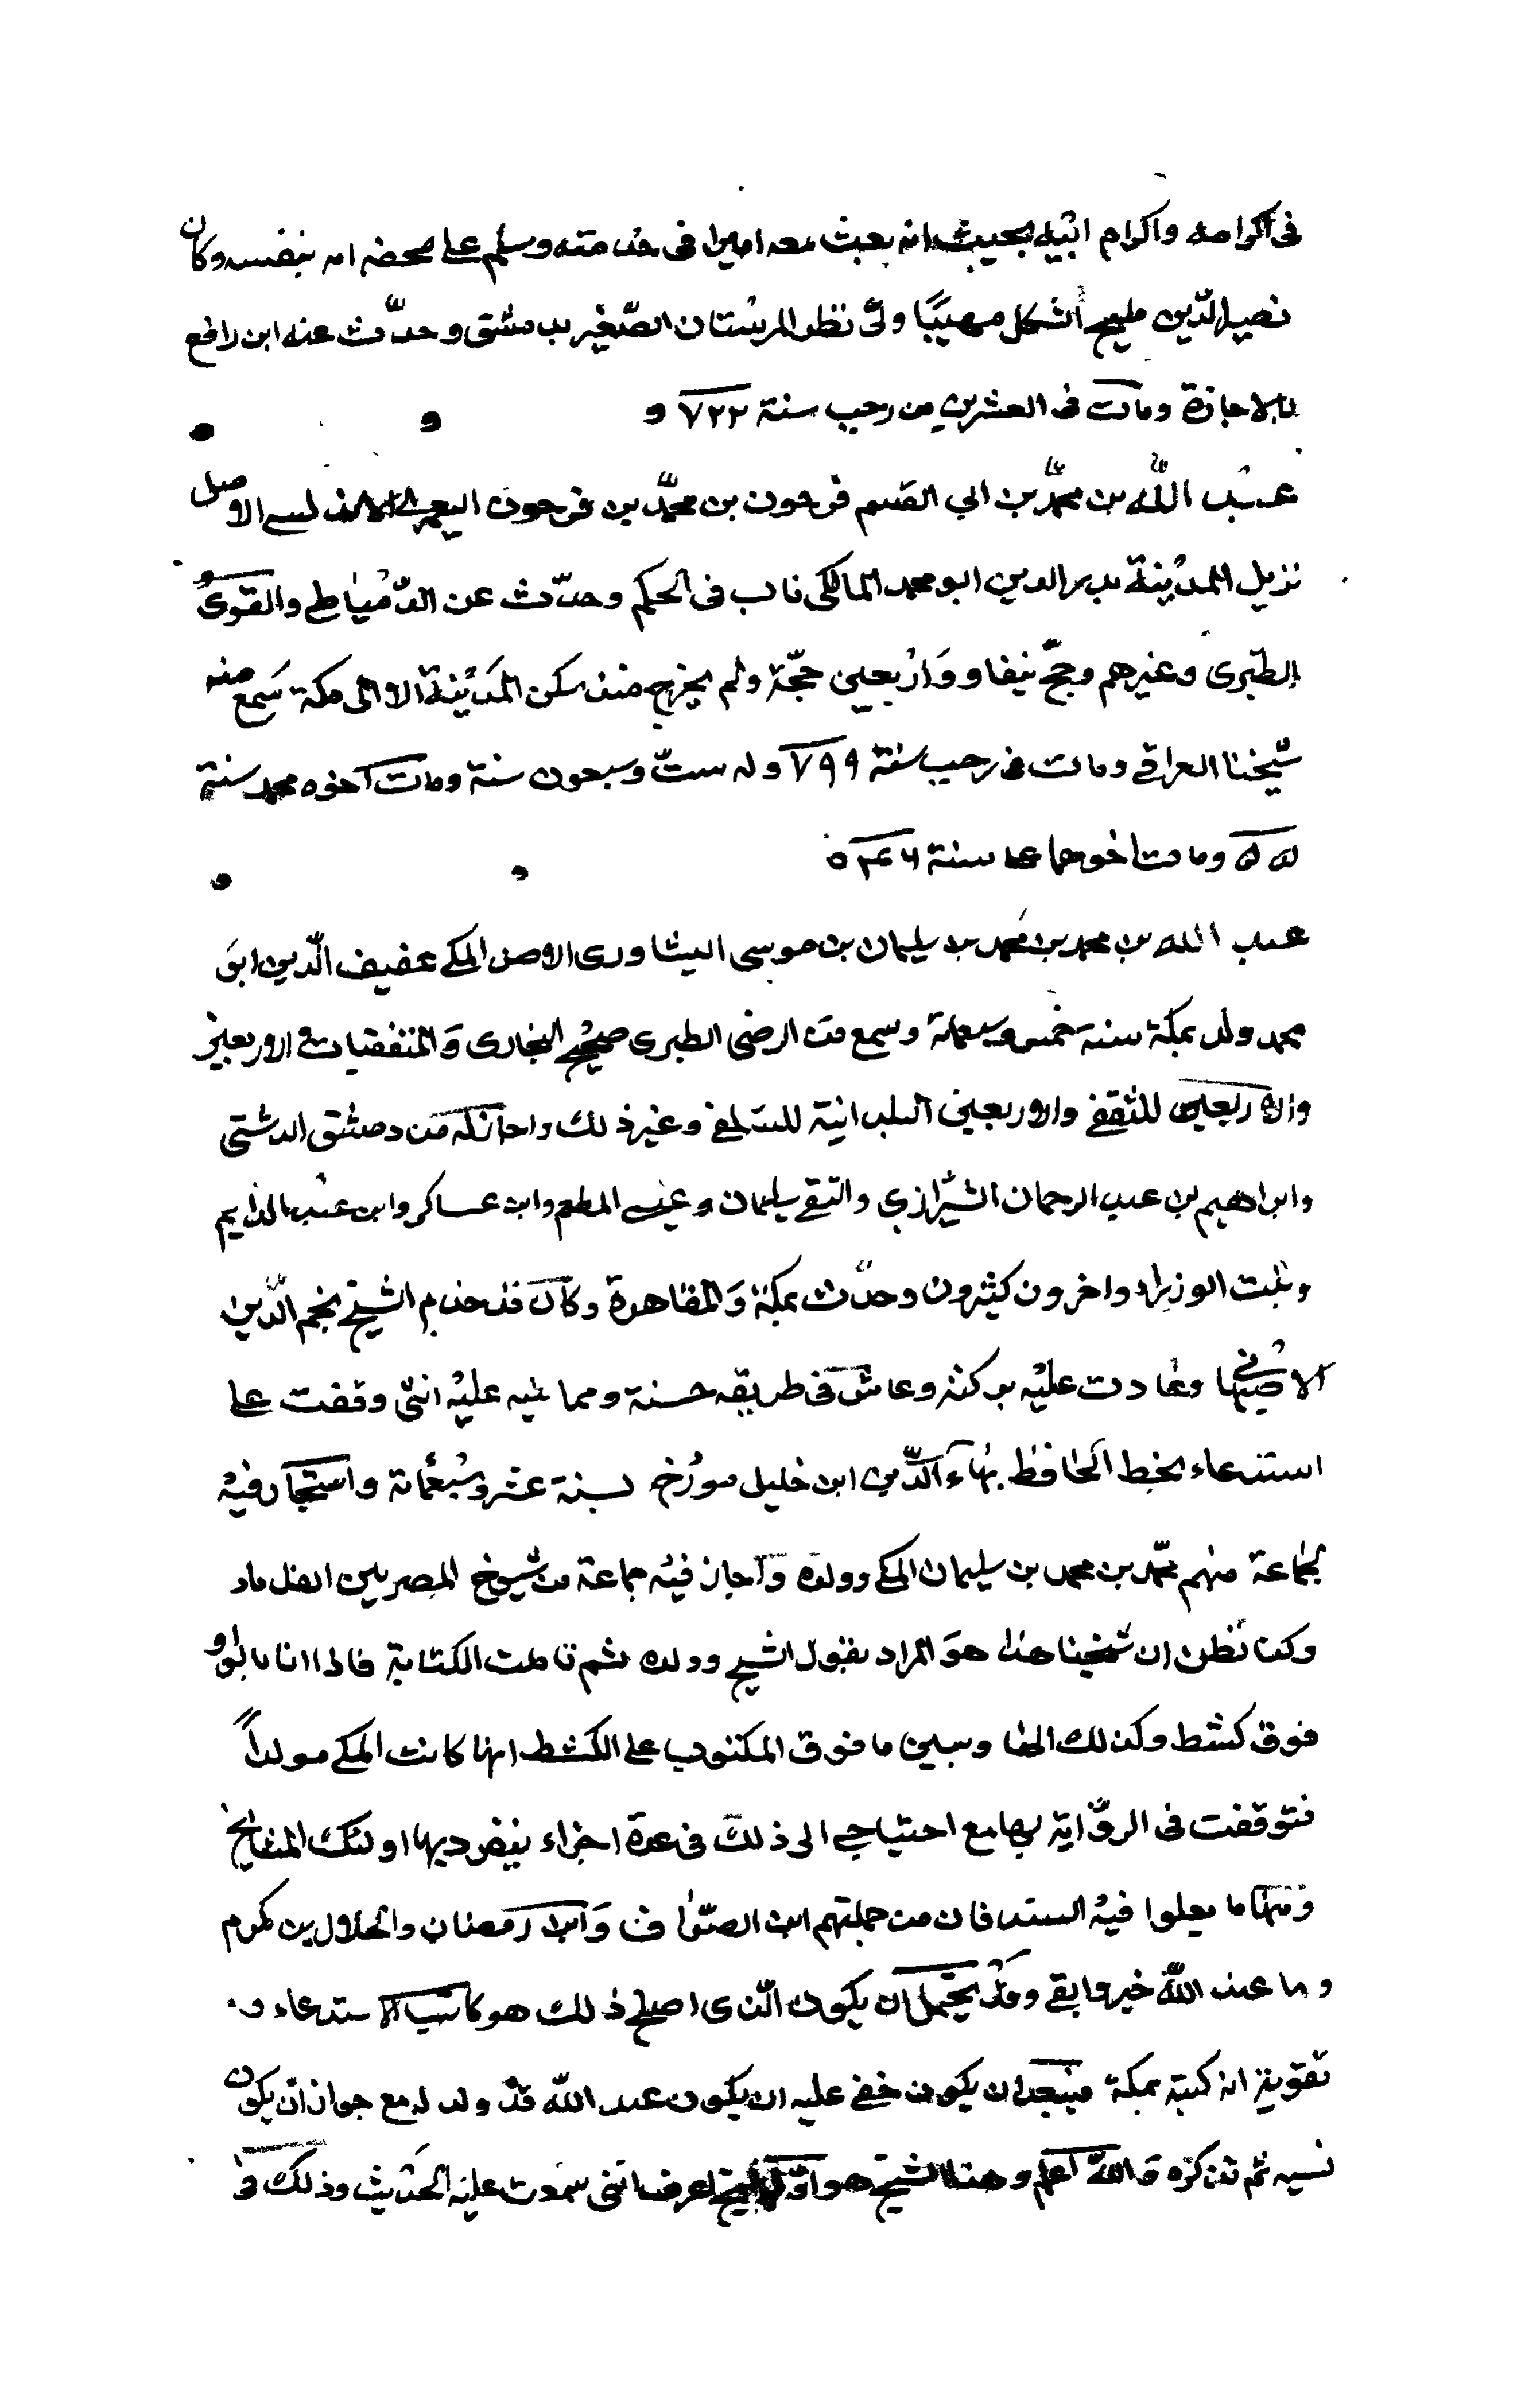 فى اكرامه واكرام ابنيه بحيث انه بعث معه اميرا فى خدمته وسلم على محضه امه بنفسه وكان
نصير الدّين مليح الشكل مهيبًا ولّى نظر المرستان الصّغير بدمشق وحدّث عنه ابن رافع
بالاجازة ومات فى العشرين من رجب سنة ٧٢٢ و
عبد اللّه بن محمّد بن ابي القسم فرحون بن محمّد بن فرحون اليعمرى الاندلسى الاصل
نزيل المدينة بدر الدين ابو محمد المالكى ناب فى الحكم وحدّث عن الدّمياطى و
الطبرى وغيرهم وحجّ نيفا و وَاربعين حجّة ولم يخرج منذ سكن المَدينة الا الى مكة سَمع منه
شيخنا العراقى ومات فى رجب سنة ٧٩٩ وله ستّ وسبعون سنة ومات اخوه محمد سنة
ومات اخوهما على سنة ٥٣٤٦
عبد الله بن محمد بن محمد بن سليمان بن موسى النيشاورى الاصل المكى عفيف الدّين ابو
محمد ولد بمكة سنة خمس وسبعمائة وسمع من الرضى الطبرى صحيح البخارى وَالثقفيات والاربعين
والاربعين للثقفى والاربعين البلدانية للسلفى وغير ذلك واجاز له من دمشق الدشتى
وابراهيم بن عبد الرحمان الشيرازي والتقى سليمان وعيسى المطعم وابن عساكر وابن عبد الدايم
وبنت الوزير واخرون كثيرون وحدّث بمكة وَالقاهرة وكان قد خدم الشيخ نجم الدّين
الاصبهانى وعادت عليْه بركته وعاش فى طريقه حسنة ومما نبه عليْه انّنى وقفت على
استدعاء بخط الحافظ بهاء الدّين ابن خليل مورّخ لسنة عشر وسبعمائة واستجار فيْه
لجماعة منهم محمّد بن محمد بن سليمان المكى وولده وَاجاز فيْه جماعة من شيوخ المصريين القدماء
وكنا نظن ان شيخنا هذا هوَ المراد بقول الشيخ وولده ثم تاملت الكتابة فاذا انا بالواو
فوق كشط وكذلك الها وسبين ما فوق المكتوب على الكشط انها كانت المكى مولداً
فتوقفت فى الروّاية بها مع احتياجي الى ذلك فى عدة اجزاء ينفرد بها اولئك المشايخ
ومنها ما يعلوا فيْه السند فان من جملتهم ابن الصوّاف وَابن رمضان والجلال بن مكرم
وما عند اللّه خير وابقى وقد يحتمل ان يكون الّذى اصلح ذلك هو كاتب الاستدعاء و
تقويته انه كتبه بمكة فيبعد ان يكون خفى عليه ان يكون عبد اللّه قد ولد له مع جواز ان يكون
نسيه ثم تذكره وَاللّه اعلم وهذا الشيخ هو اوّل شيخ اعرف انّنى سمعت عليْه الحَديث وذلك فى